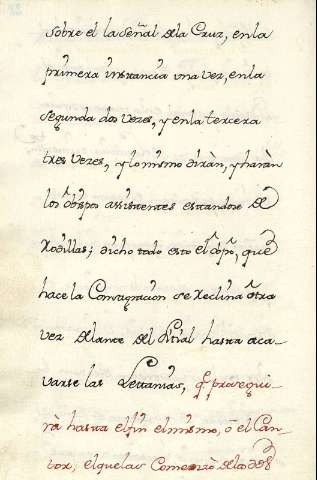 sobre él la señal dela Cruz, en la
primera instancia una vez, en la
segunda dos vezes, y en la tercera
tres vezes, y lo mismo diràn, y haràn
los obispos assistentes estandose de
Rodillas; dicho todo esto el obpo, que
hace la Consagracion se reclina otra
vez delante del sitial hasta aca-
varse las Lettanias, q prosegui-
rà hasta el fin el mismo, ò el Can-
tor, el que las Comenzò